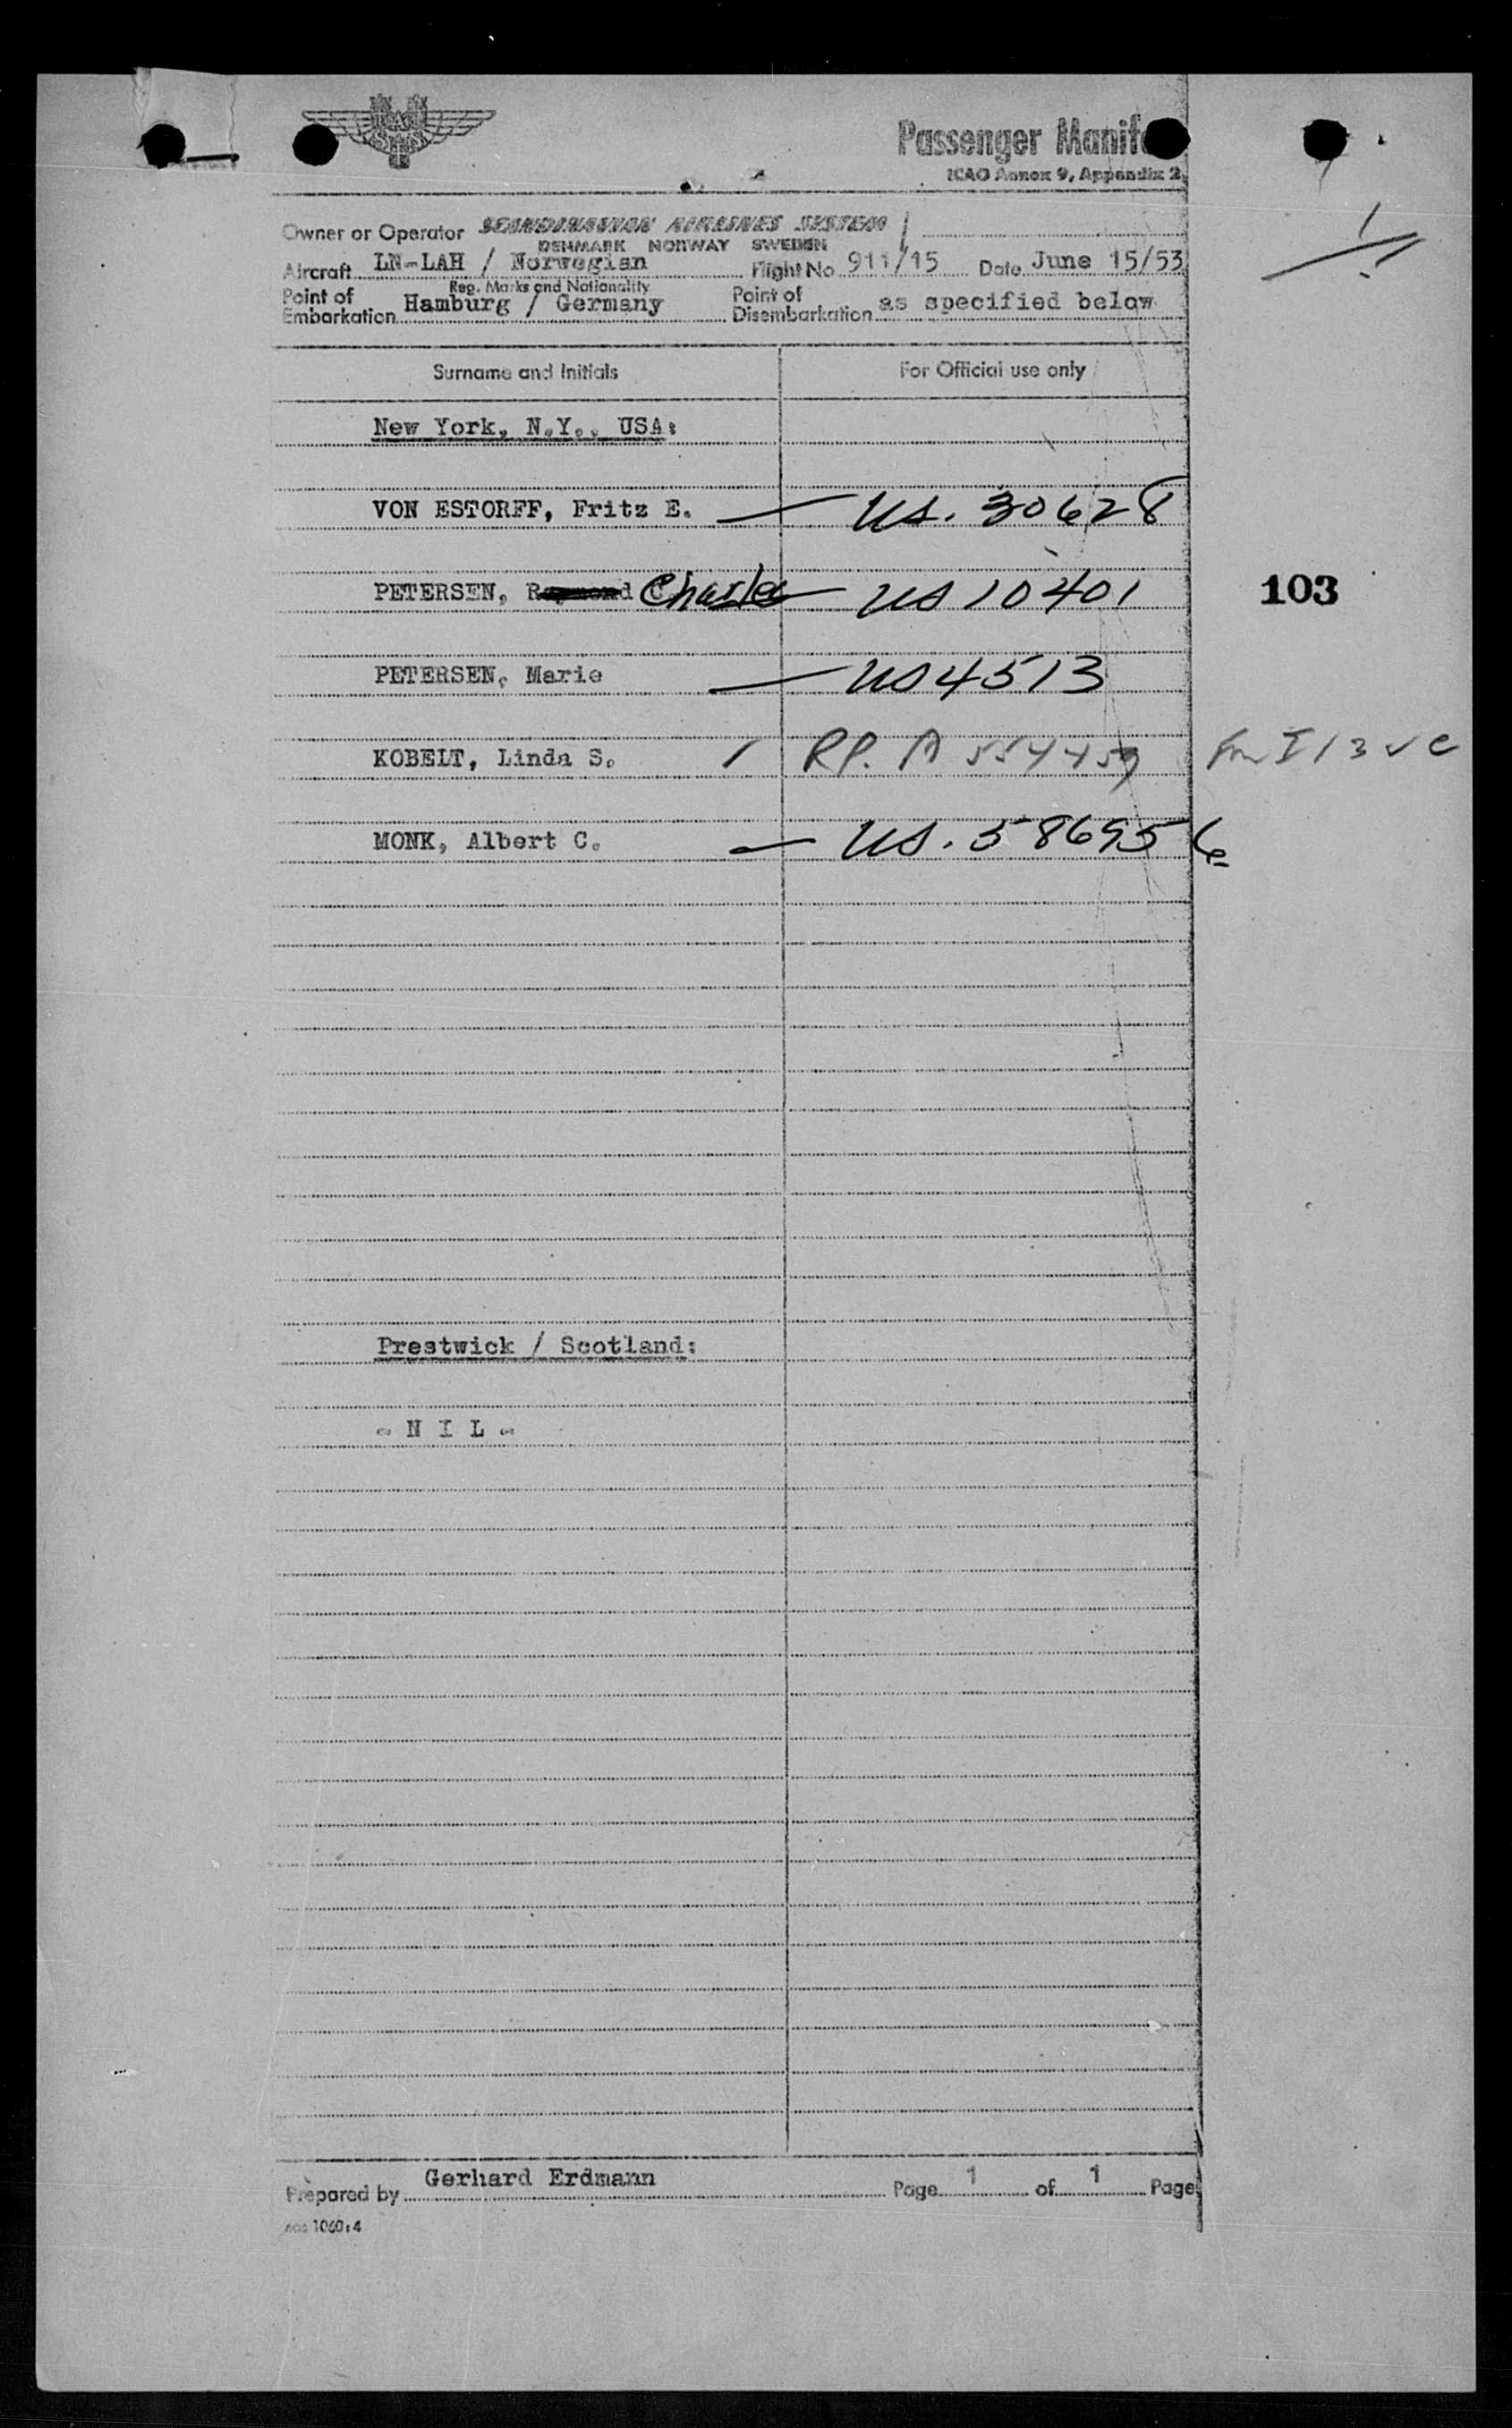 Passenger Manif
ICAO Annex 9, Appendix 2
Owner or Operator SCANDINAVIAN AIRLINES SYSTEM
DENMARK NORWAY SWEDEN
Aircraft LN-LAH / Norwegian Flight No 911/15 Date June 15/53
Reg. Marks and Nationality
Point of Embarkation Hamburg / Germany Point of Disembarkation as specified below
Surname and Initials For Official use only
New York, N.Y., USA:
VON ESTORFF, Fritz E. US. 30628
PETERSEN, Raymond C Charles US 10401
103
PETERSEN, Marie US 4513
KOBELT, Linda S. RP. A 554459
MONK, Albert C. US. 586956
Prestwick / Scotland:
- N I L -
Prepared by Gerhard Erdmann Page 1 of 1 Page
1060:4